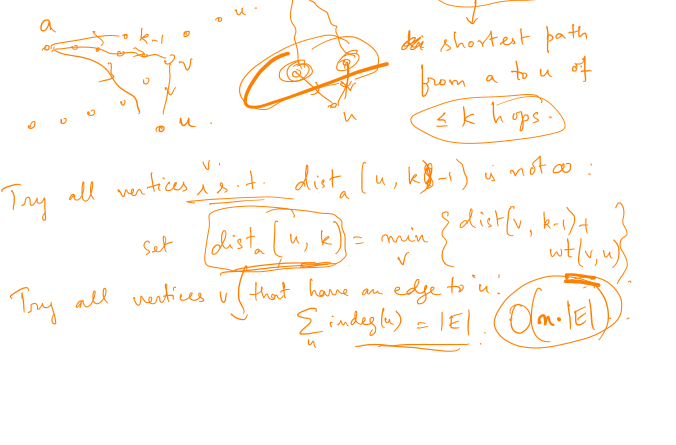 a
k-1
u.
v
u.
u
shortest path
from a to u of
≤ k hops.
Try all vertices v s.t. dist_a (u, k-1) is not ∞ :
set dist_a (u, k) = min_v { dist(v, k-1) + wt(v, u) }
Try all vertices v (that have an edge to 'u'.
∑_u indeg(u) = |E|. O(n·|E|).